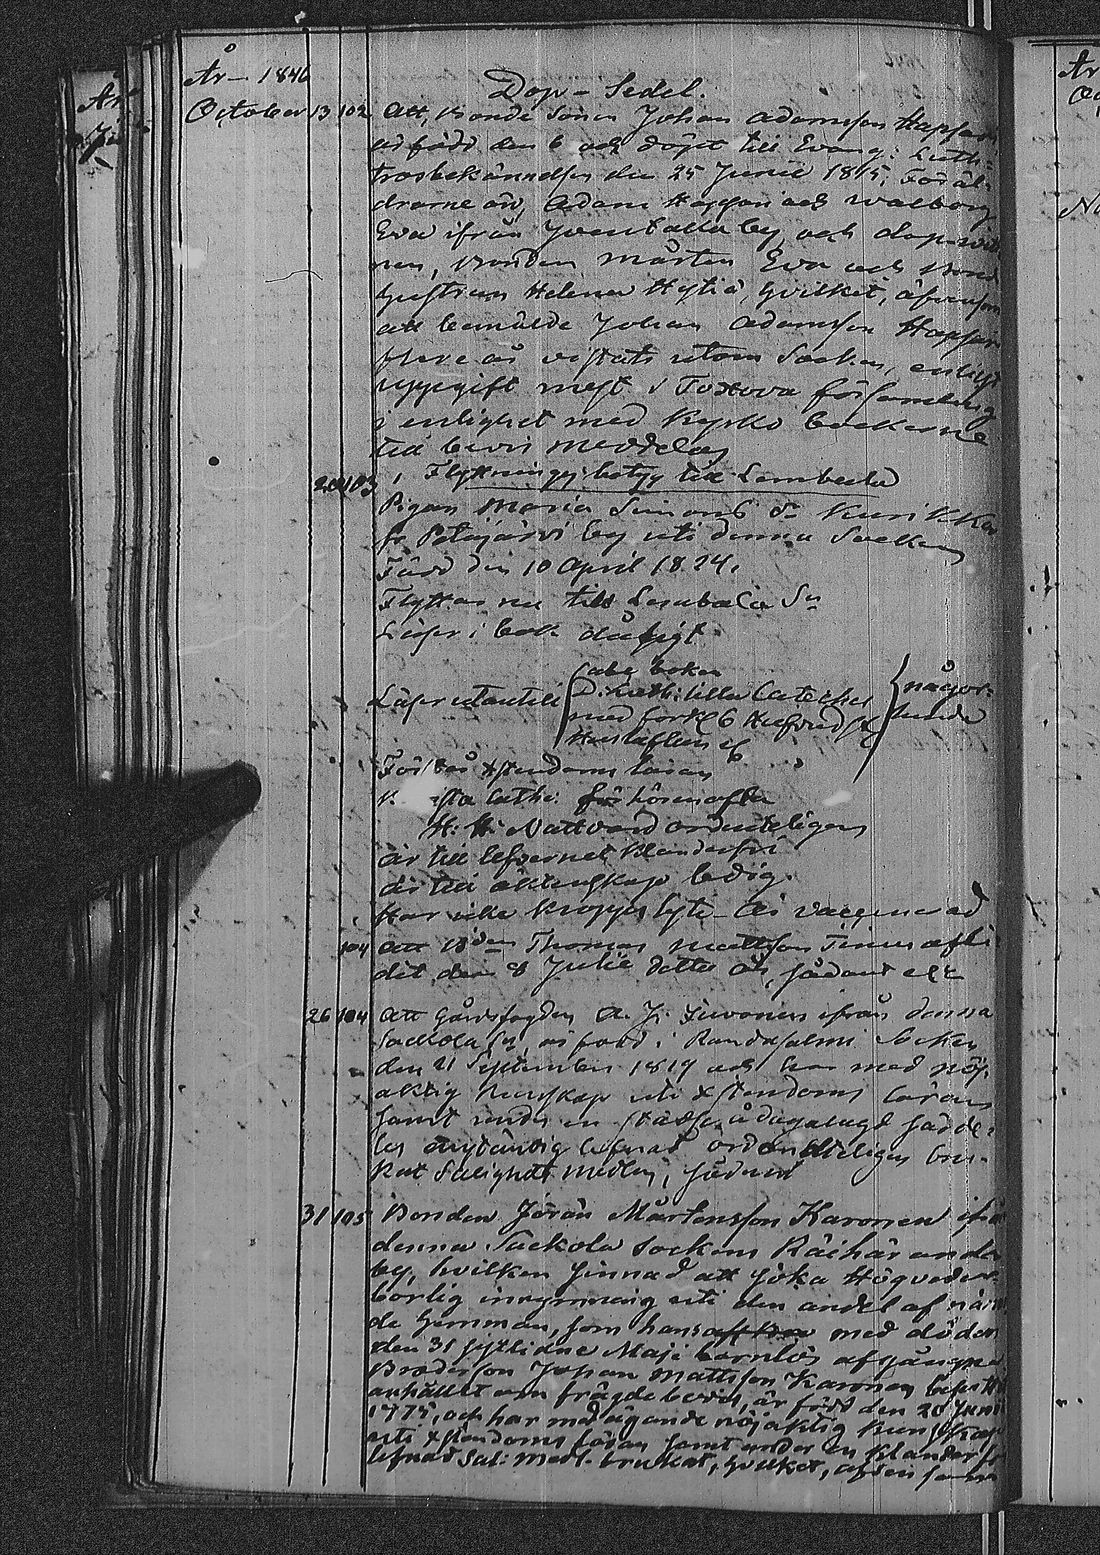 År 1846
Dop-Sedel.
October 13 102 Att, Bonde Sonen Johan Adamsson Happon
är född den 6 och döpt till Evang: Luth:
trosbekännelsen den 25 Junii 1815, Föräl-
drarne äro, Adam Happon och Walborg
Eva ifrån by och dopvitt-
nen, Bonden Mårten Eva och Bond
hustrun Helena Hytiä, hvilket, äfvensom
att bemälde Johan Adamsson Happon
flere år vistats utom Socken, enligt
uppgift mest i Toxova församling
i enlighet med Kyrko böckerne
till bevis meddelas
20 103 Flyttnings betyg till Lembala
Pigan Maria Simons dr Kurikka
fr Petäjärvi by uti denna Socken
Född den 10 April 1824.
Flyttar nu till Lembala Sn
Läser i bok dåligt
Läser utantill abc boken
D: Luth: lilla Cateches
med fork
Hustaflan
någor-
lunda
Förstår Xstendoms läran
Cathe: förhören ofta
H: H: Nattvard ordenteligen
är till lefvernet Klanderfri
är till äktenskap ledig.
Har icke kroppslyte Är vaccinerad
104 Att Bden Thomas Mattsson afli-
dit den 8 Julii detta år, sådant etc
26 104 Att gårdsfogden A. J. ifrån denna
Sackola Sn är född i Randasalmi Socken
den 21 September 1819 och har med nöj-
aktig kunskap uti Xstendoms läran
samt under en ådagalagd särde-
les anständig lefnad ordenteligen bru-
kat Salighets medlen, sådant
31 105 Bonden Jöran Mårtensson Karonen ifrån
denna Sackola sockens Räihäranda
by, hvilken sinnad att söka Högveder-
börlig inrymning uti den andel af näm
de hemman, som hans med döden
den 31 sistlidne Maji barnlös afgångne
Broderson Johan Mattsson Karonen
anhållit om frägdebevis, är född den 20 Junii
1775, och har med ägande nöjaktig kunskap
uti Xstendoms läran samt under en Klanderfri
lefnad Sal: medl. brukat, hvilket,